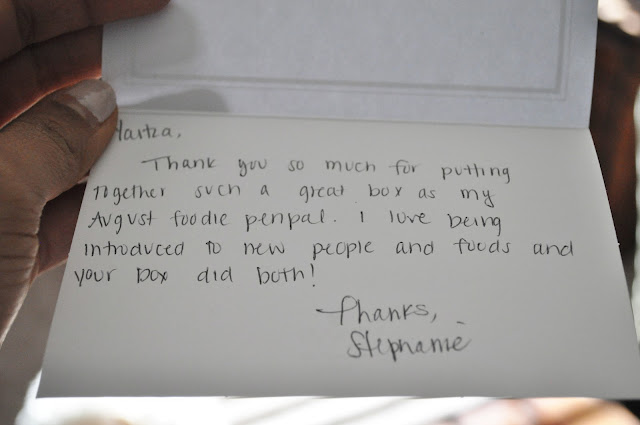 Thank you so much for putting
together such a great box as my
August foodie penpal. I love being
introduced to new people and foods and
your box did both!
Thanks,
Stephanie